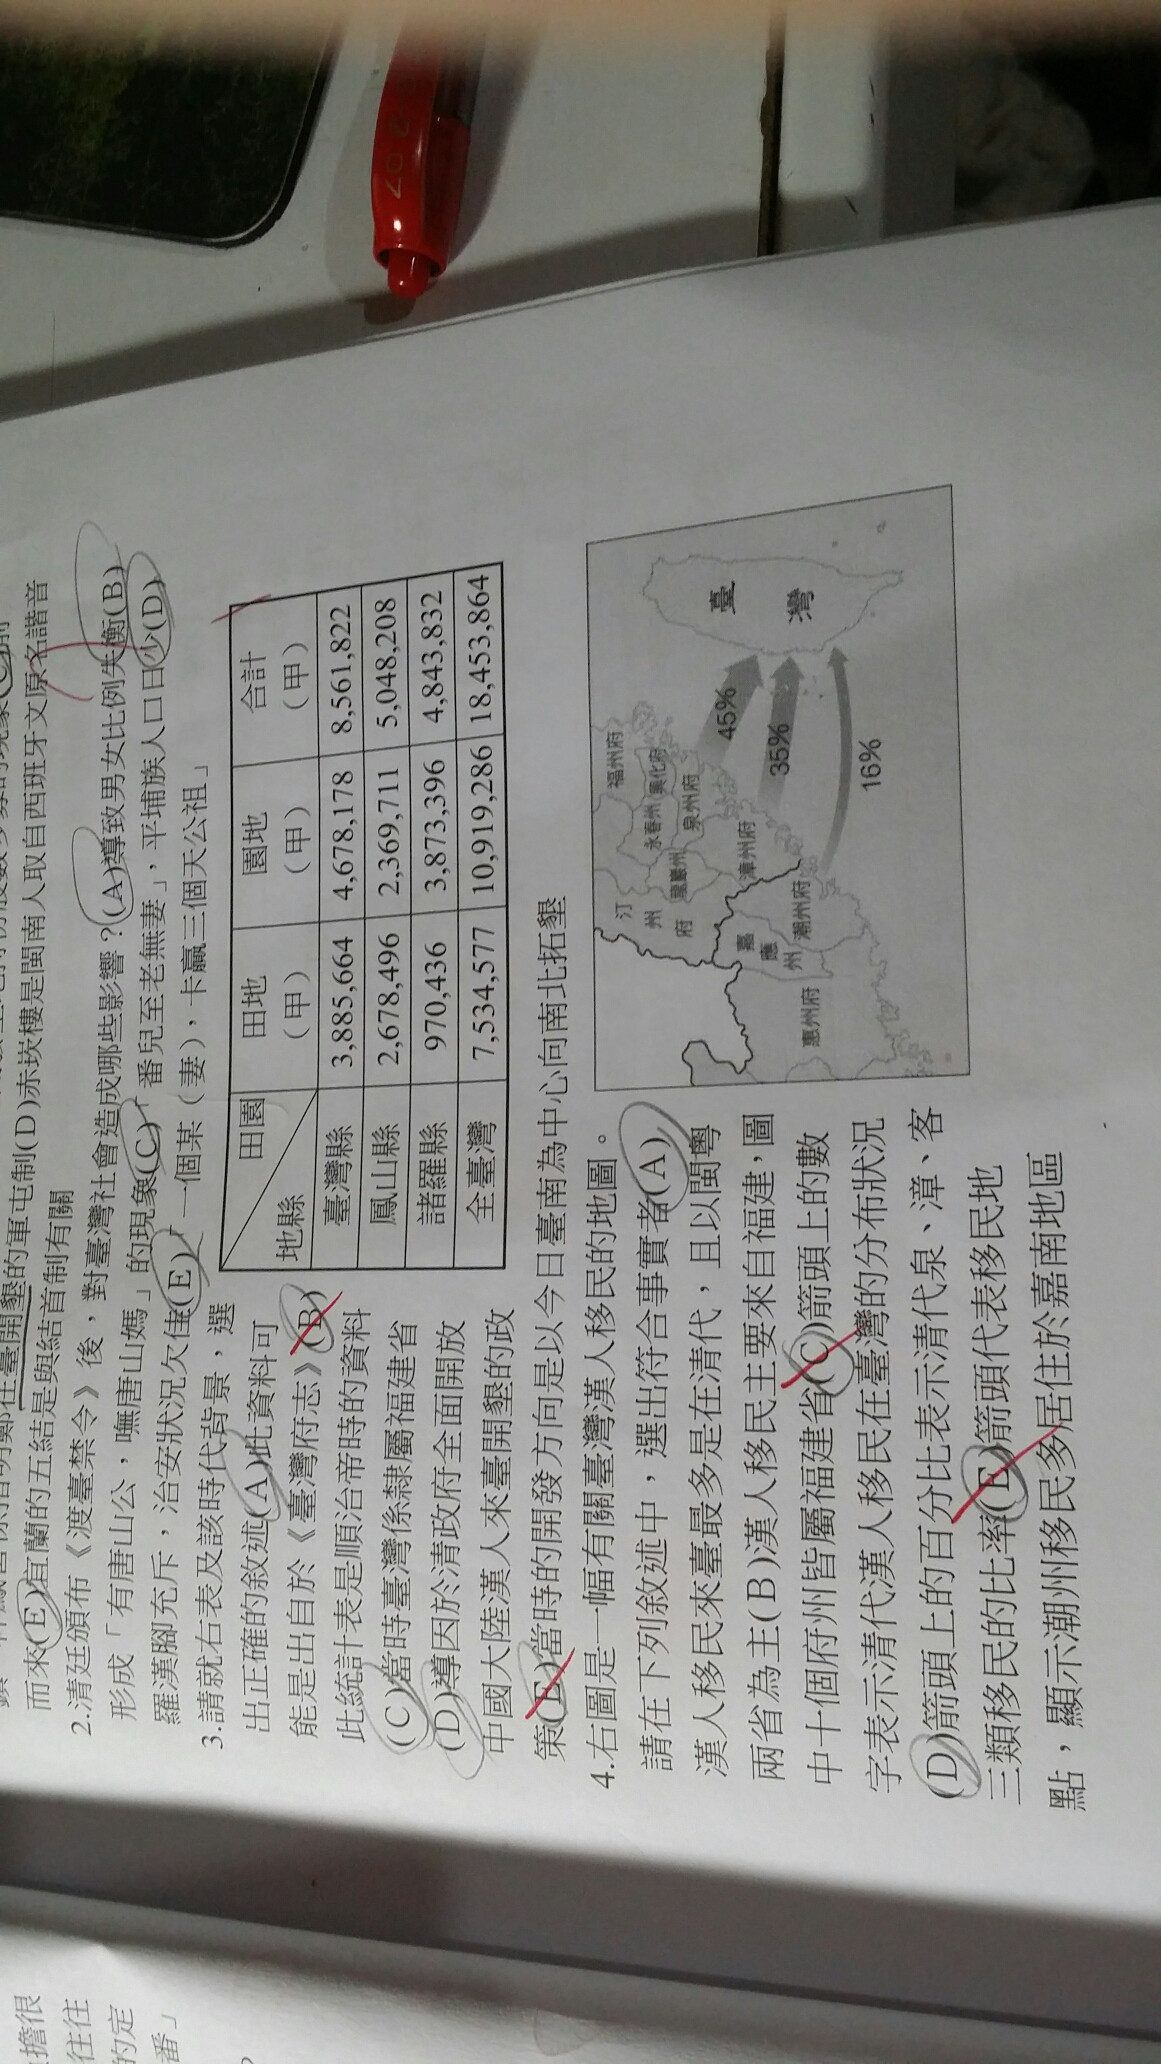 而來(E)宜蘭的五結是與結首制有關
2.清廷頒布《渡臺禁令》後，對臺灣社會造成哪些影響？(A)導致男女比例失衡(B)
形成「有唐山公，嘸唐山媽」的現象(C)「番兒至老無妻」，平埔族人口日少(D)
羅漢腳充斥，治安狀況欠佳(E)「一個某（妻），卡贏三個天公祖」
3.請就右表及該時代背景，選
出正確的敘述(A)此資料可
能是出自於《臺灣府志》(B)
此統計表是順治帝時的資料
(C)當時臺灣係隸屬福建省
(D)導因於清政府全面開放
中國大陸漢人來臺開墾的政
策(E)當時的開發方向是以今日臺南為中心向南北拓墾
田園
地縣
田地（甲）
園地（甲）
合計（甲）
臺灣縣 3,885,664 4,678,178 8,561,822
鳳山縣 2,678,496 2,369,711 5,048,208
諸羅縣 970,436 3,873,396 4,843,832
全臺灣 7,534,577 10,919,286 18,453,864
4.右圖是一幅有關臺灣漢人移民的地圖。
請在下列敘述中，選出符合事實者(A)
漢人移民來臺最多是在清代，且以閩粵
兩省為主(B)漢人移民主要來自福建，圖
中十個府州皆屬福建省(C)箭頭上的數
字表示清代漢人移民在臺灣的分布狀況
(D)箭頭上的百分比表示清代泉、漳、客
三類移民的比率(E)箭頭代表移民地
點，顯示潮州移民多居住於嘉南地區
福州府
興化府
永春州
泉州府
龍巖州
漳州府
汀州府
嘉應州
潮州府
惠州府
臺灣
45%
35%
16%
擔很
往往
的定
番」